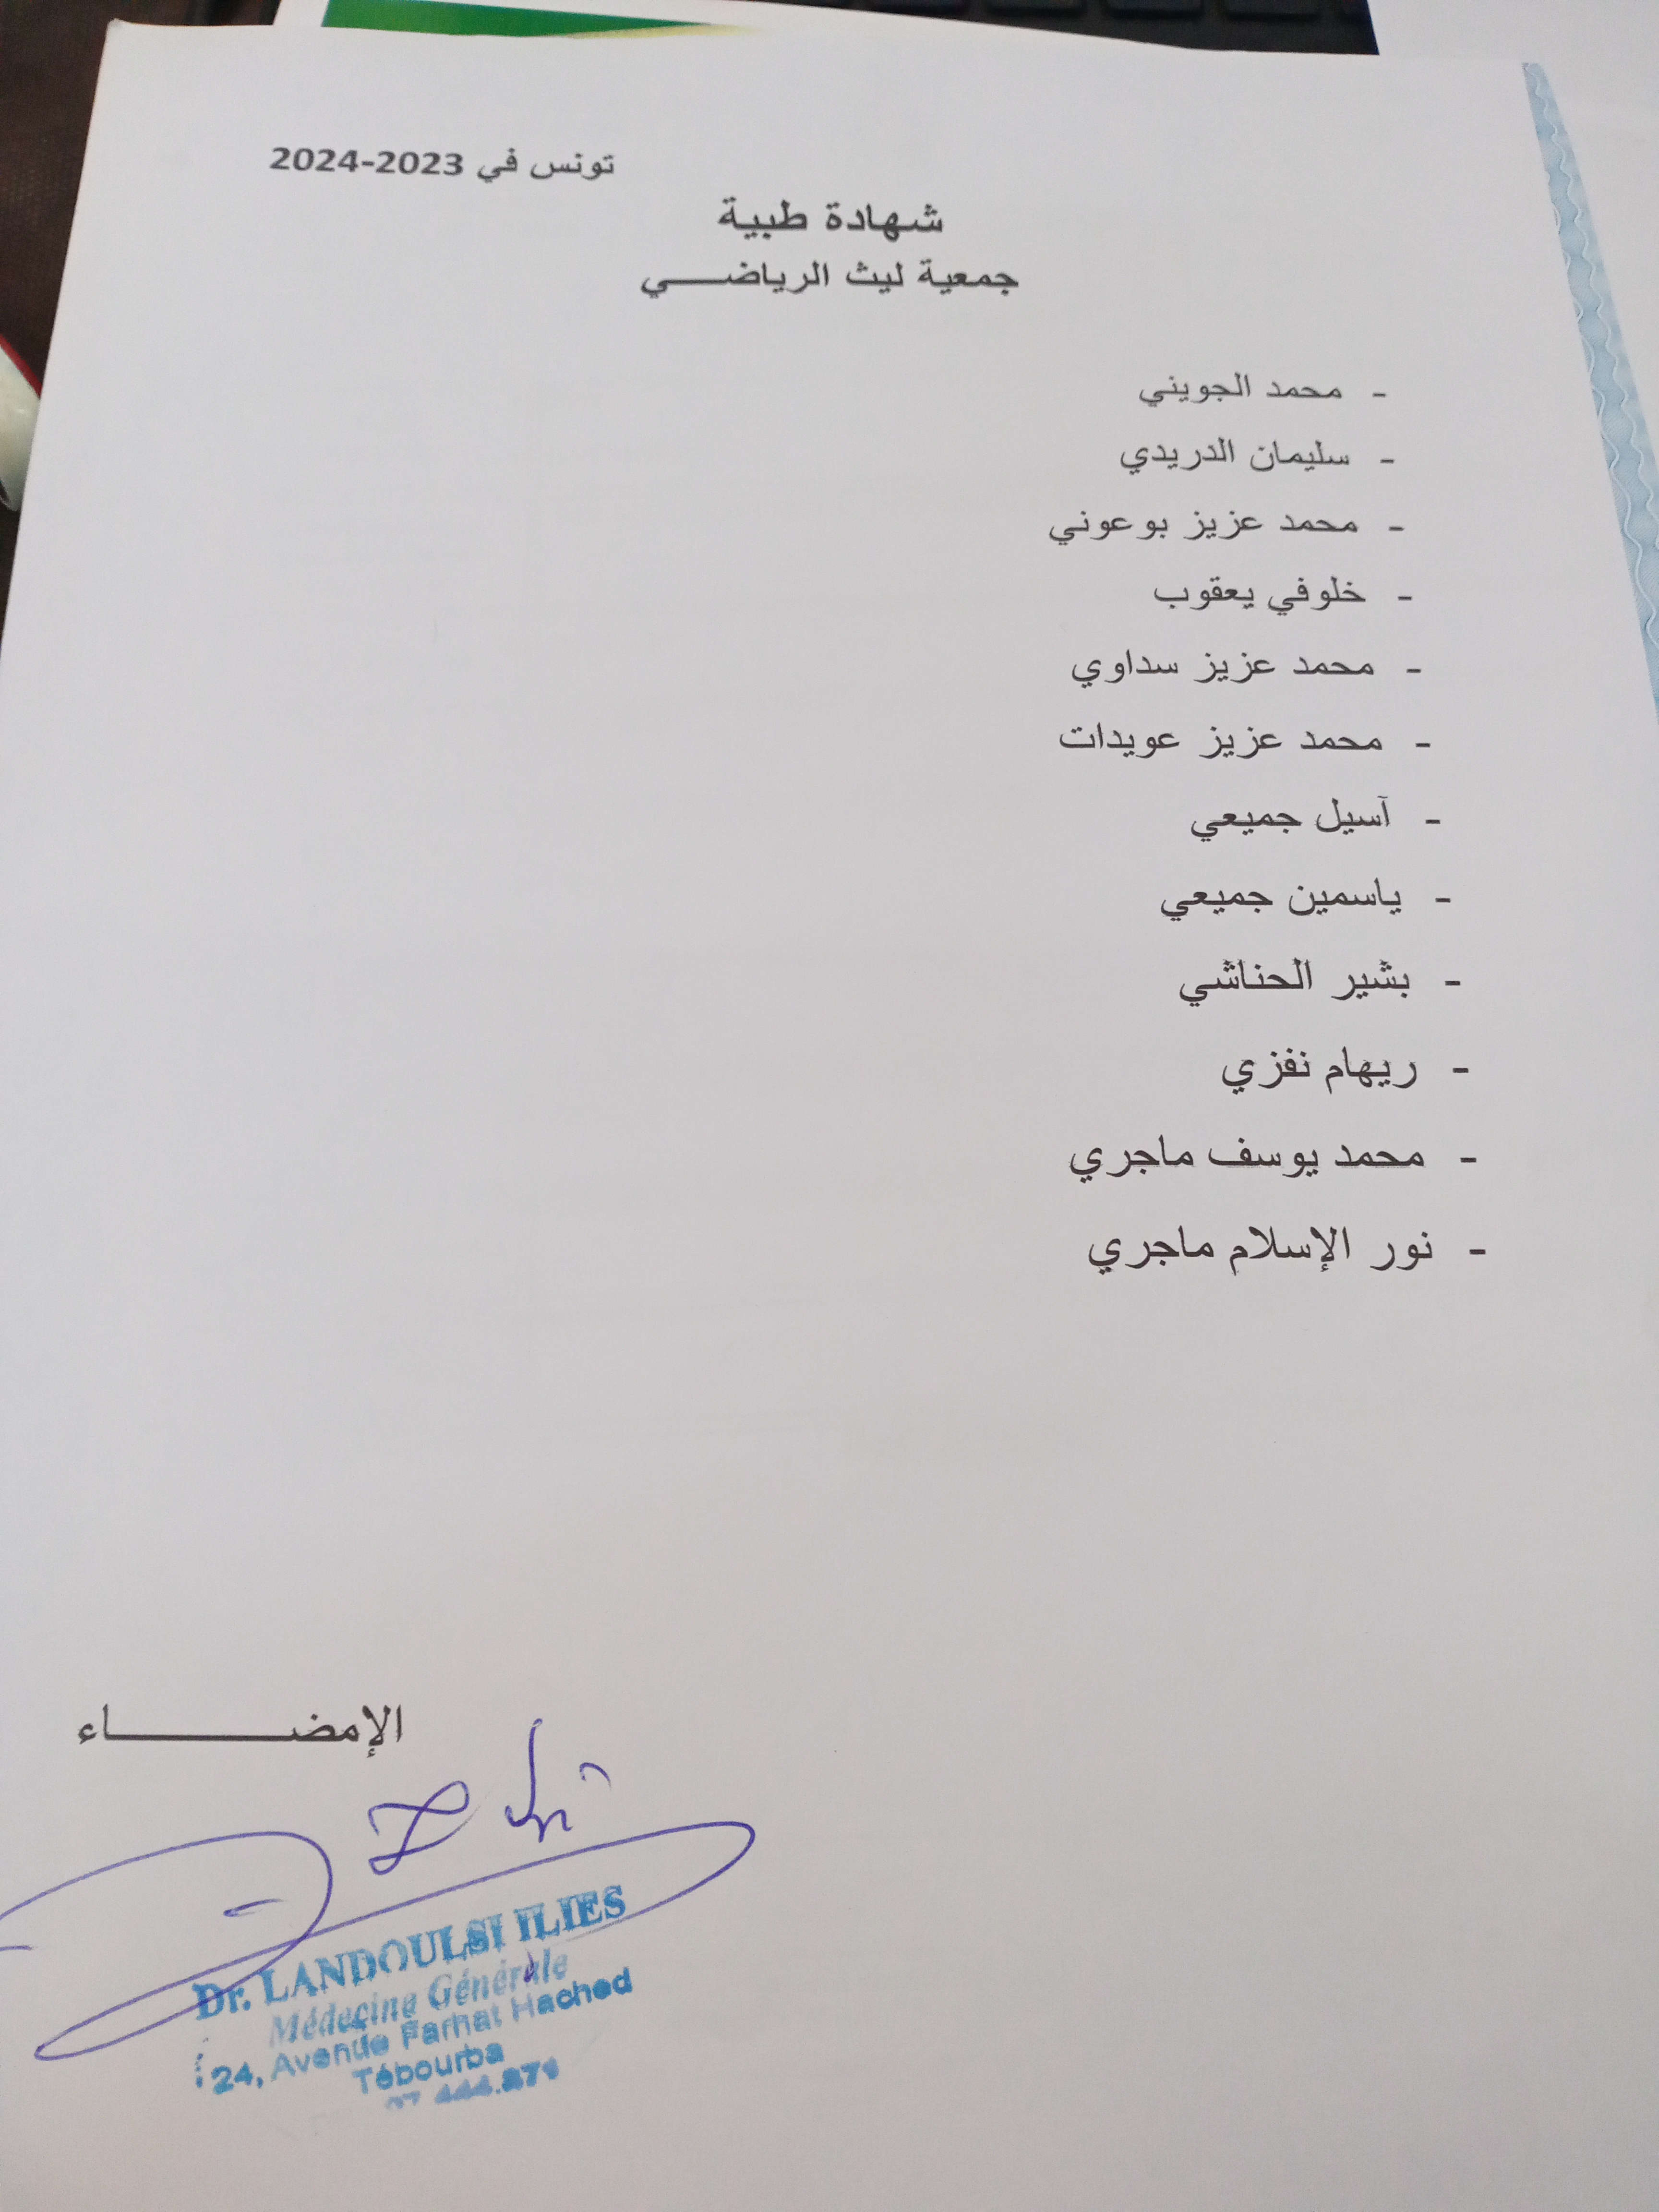 تونس في 2023-2024
شهادة طبية
جمعية ليث الرياضـــــي
- محمد الجويني
- سليمان الدريدي
- محمد عزيز بوعوني
- خلوفي يعقوب
- محمد عزيز سداوي
- محمد عزيز عويدات
- آسيل جميعي
- ياسمين جميعي
- بشير الحناشي
- ريهام نفزي
- محمد يوسف ماجري
- نور الإسلام ماجري
الإمضـــــــــــاء
Dr. LANDOULSI ILIES
Médecine Générale
24, Avenue Farhat Hached
Tébourba